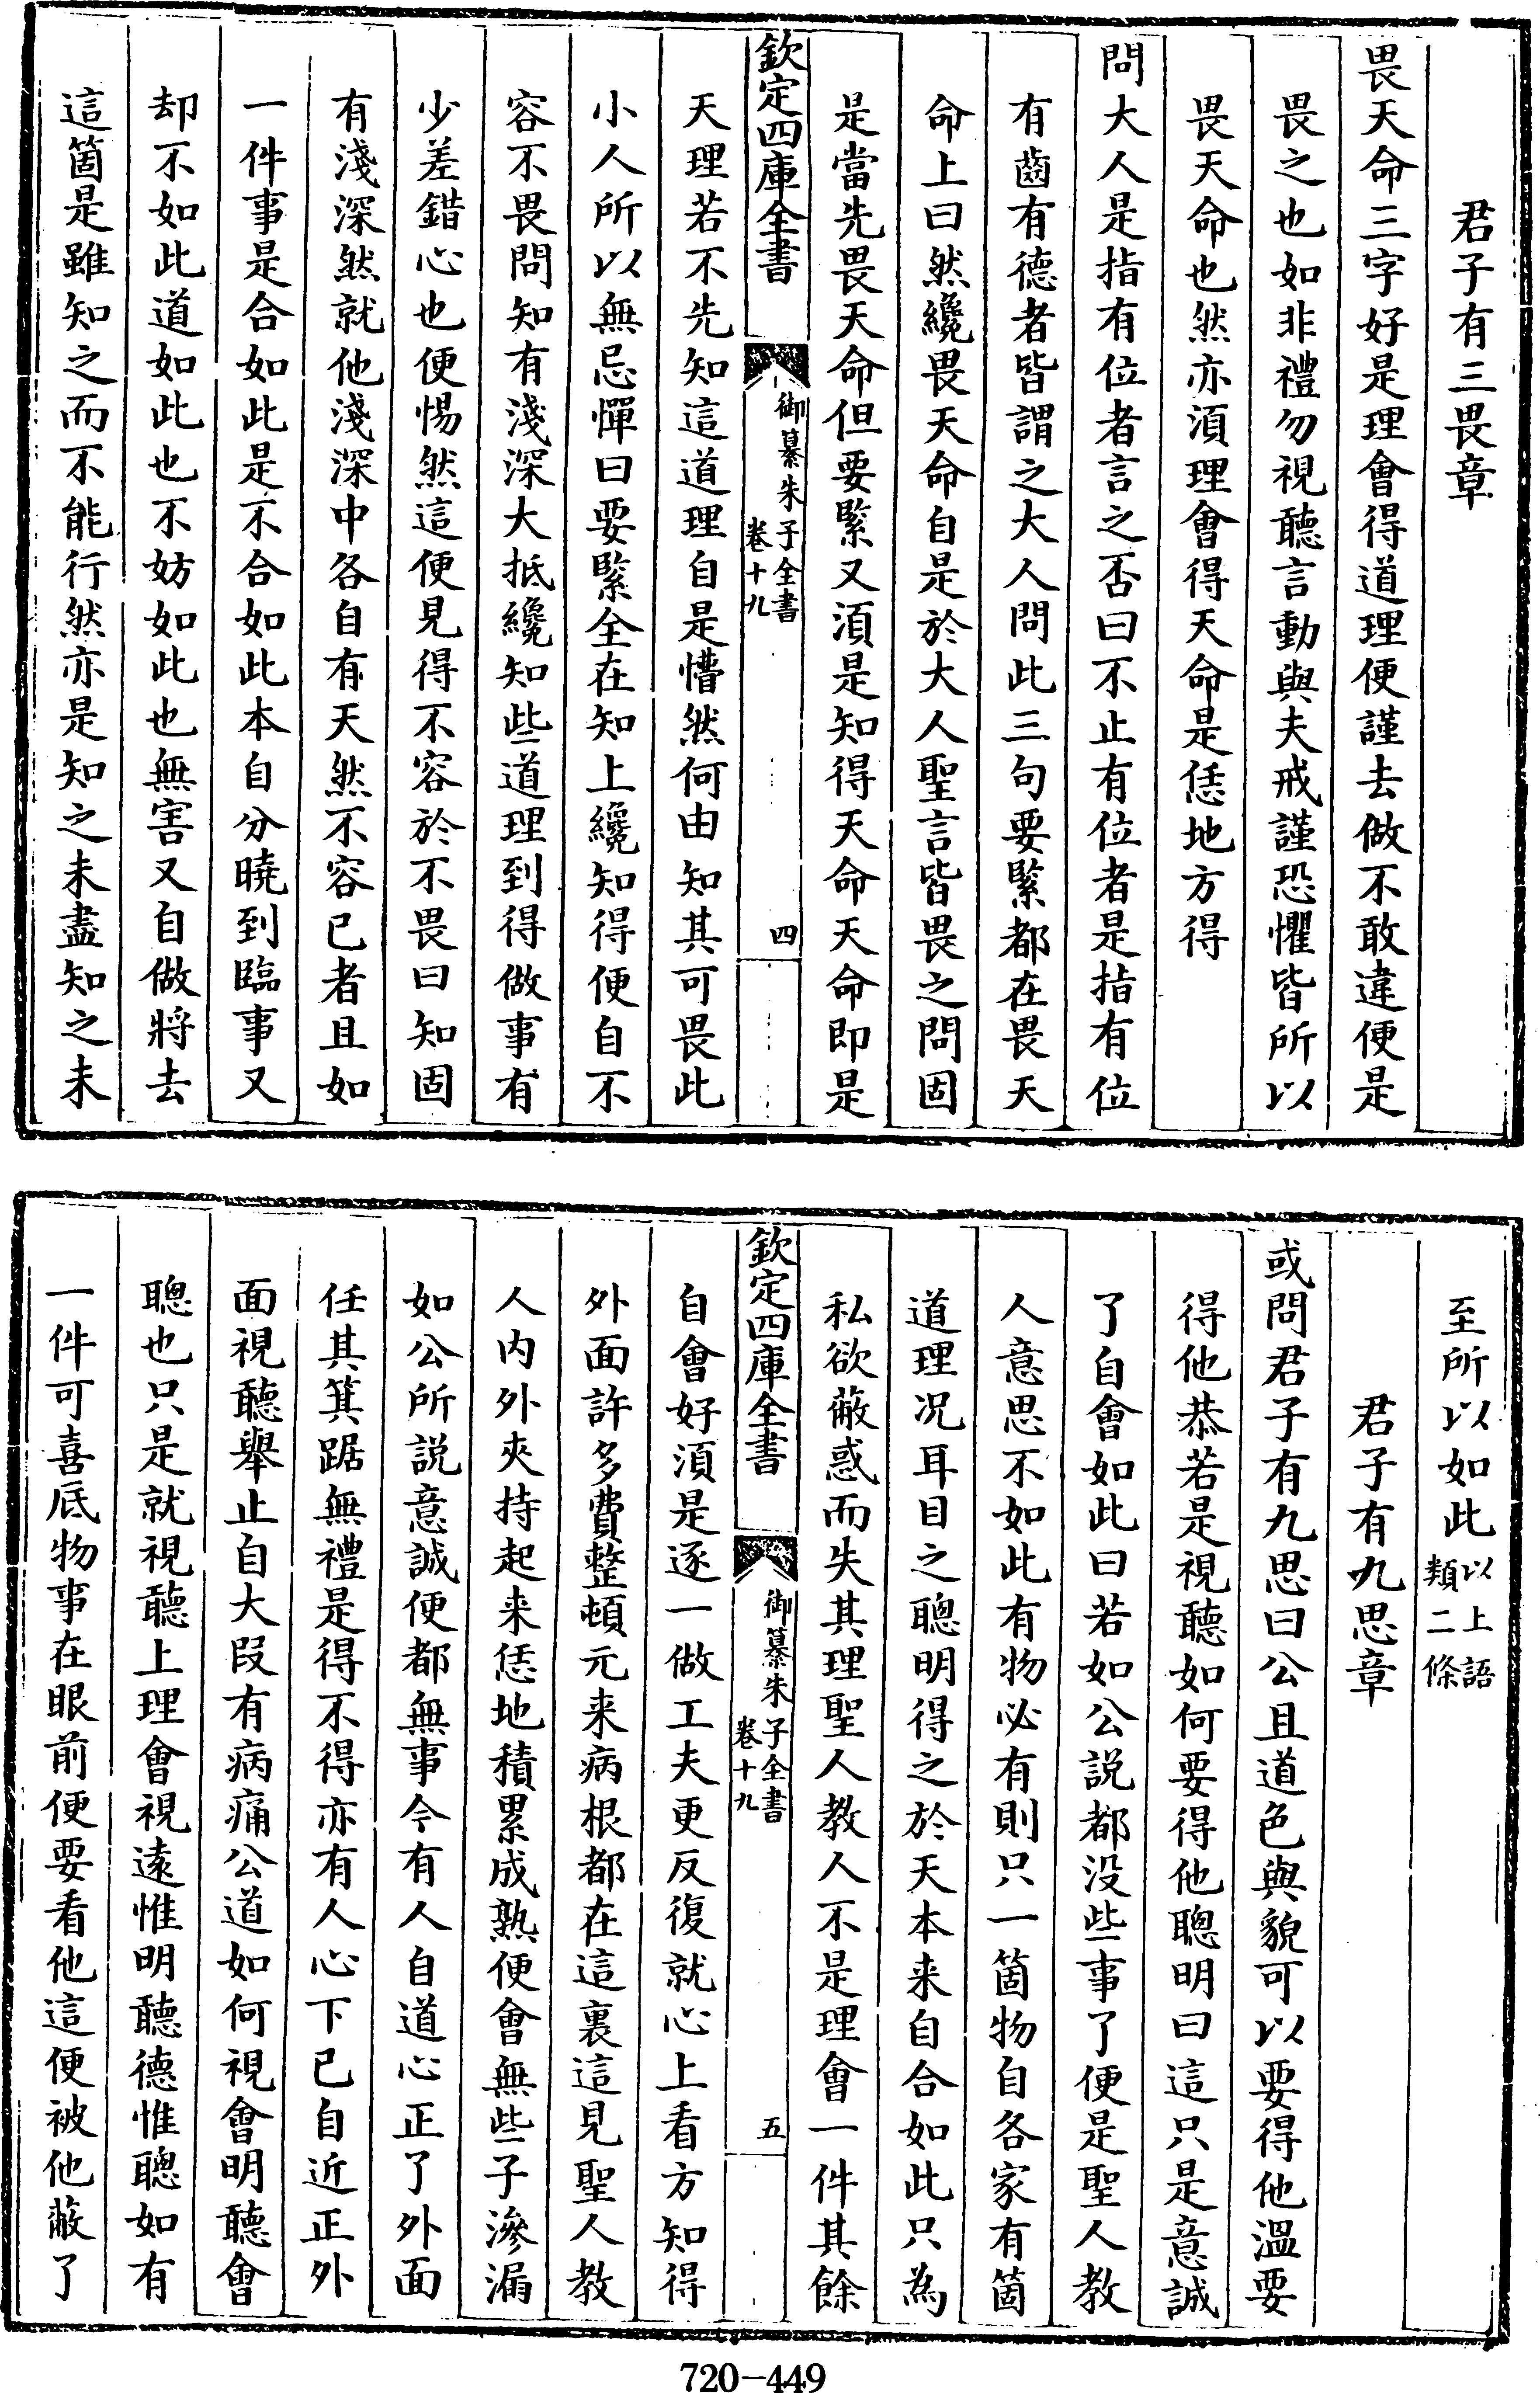 君子有三畏章
畏天命三字好是理會得道理便謹去做不敢違便是
畏之也如非禮勿視聽言動與夫戒謹恐懼皆所以
畏天命也然亦須理會得天命是恁地方得
問大人是指有位者言之否曰不止有位者是指有位
有齒有德者皆謂之大人問此三句要緊都在畏天
命上曰然纔畏天命自是於大人聖言皆畏之問固
是當先畏天命但要緊又須是知得天命天命即是
欽定四庫全書
御纂朱子全書
卷十九
四
天理若不先知這道理自是懵然何由知其可畏此
小人所以無忌憚曰要緊全在知上纔知得便自不
容不畏問知有淺深大抵纔知些道理到得做事有
少差錯心也便惕然這便見得不容於不畏曰知固
有淺深然就他淺深中各自有天然不容已者且如
一件事是合如此是不合如此本自分曉到臨事又
却不如此道如此也不妨如此也無害又自做將去
這箇是雖知之而不能行然亦是知之未盡知之未
至所以如此以上語
類二條
君子有九思章
或問君子有九思曰公且道色與貌可以要得他溫要
得他恭若是視聽如何要得他聰明曰這只是意誠
了自會如此曰若如公説都没些事了便是聖人教
人意思不如此有物必有則只一箇物自各家有箇
道理况耳目之聰明得之於天本来自合如此只為
私欲蔽惑而失其理聖人教人不是理會一件其餘
欽定四庫全書
御纂朱子全書
卷十九
五
自會好須是逐一做工夫更反復就心上看方知得
外面許多費整頓元来病根都在這裏這見聖人教
人内外夾持起来恁地積累成熟便會無些子滲漏
如公所説意誠便都無事今有人自道心正了外面
任其箕踞無禮是得不得亦有人心下已自近正外
面視聽舉止自大段有病痛公道如何視會明聽會
聰也只是就視聽上理會視遠惟明聽德惟聰如有
一件可喜底物事在眼前便要看他這便被他蔽了
720-449